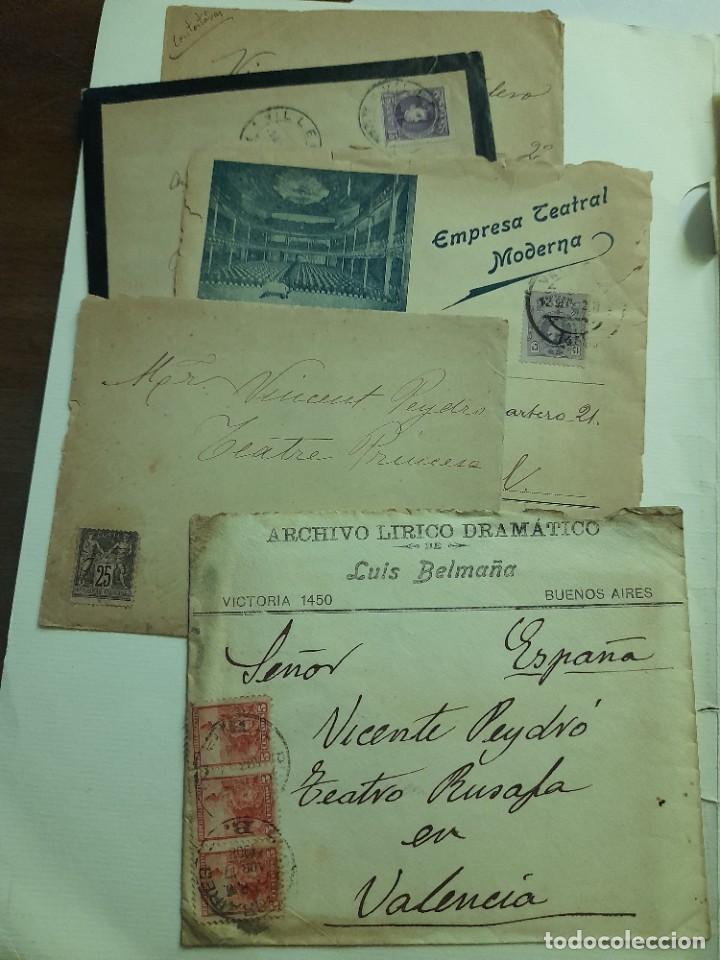 2º
Empresa Teatral
Moderna
artero 21.
V
Mr. Vincent Peydró
Teatre Princesa
25
ARCHIVO LIRICO DRAMÁTICO
DE
Luis Belmaña
VICTORIA 1450 BUENOS AIRES
España
Señor
Vicente Peydró
Teatro Rusafa
en
Valencia
todocoleccion